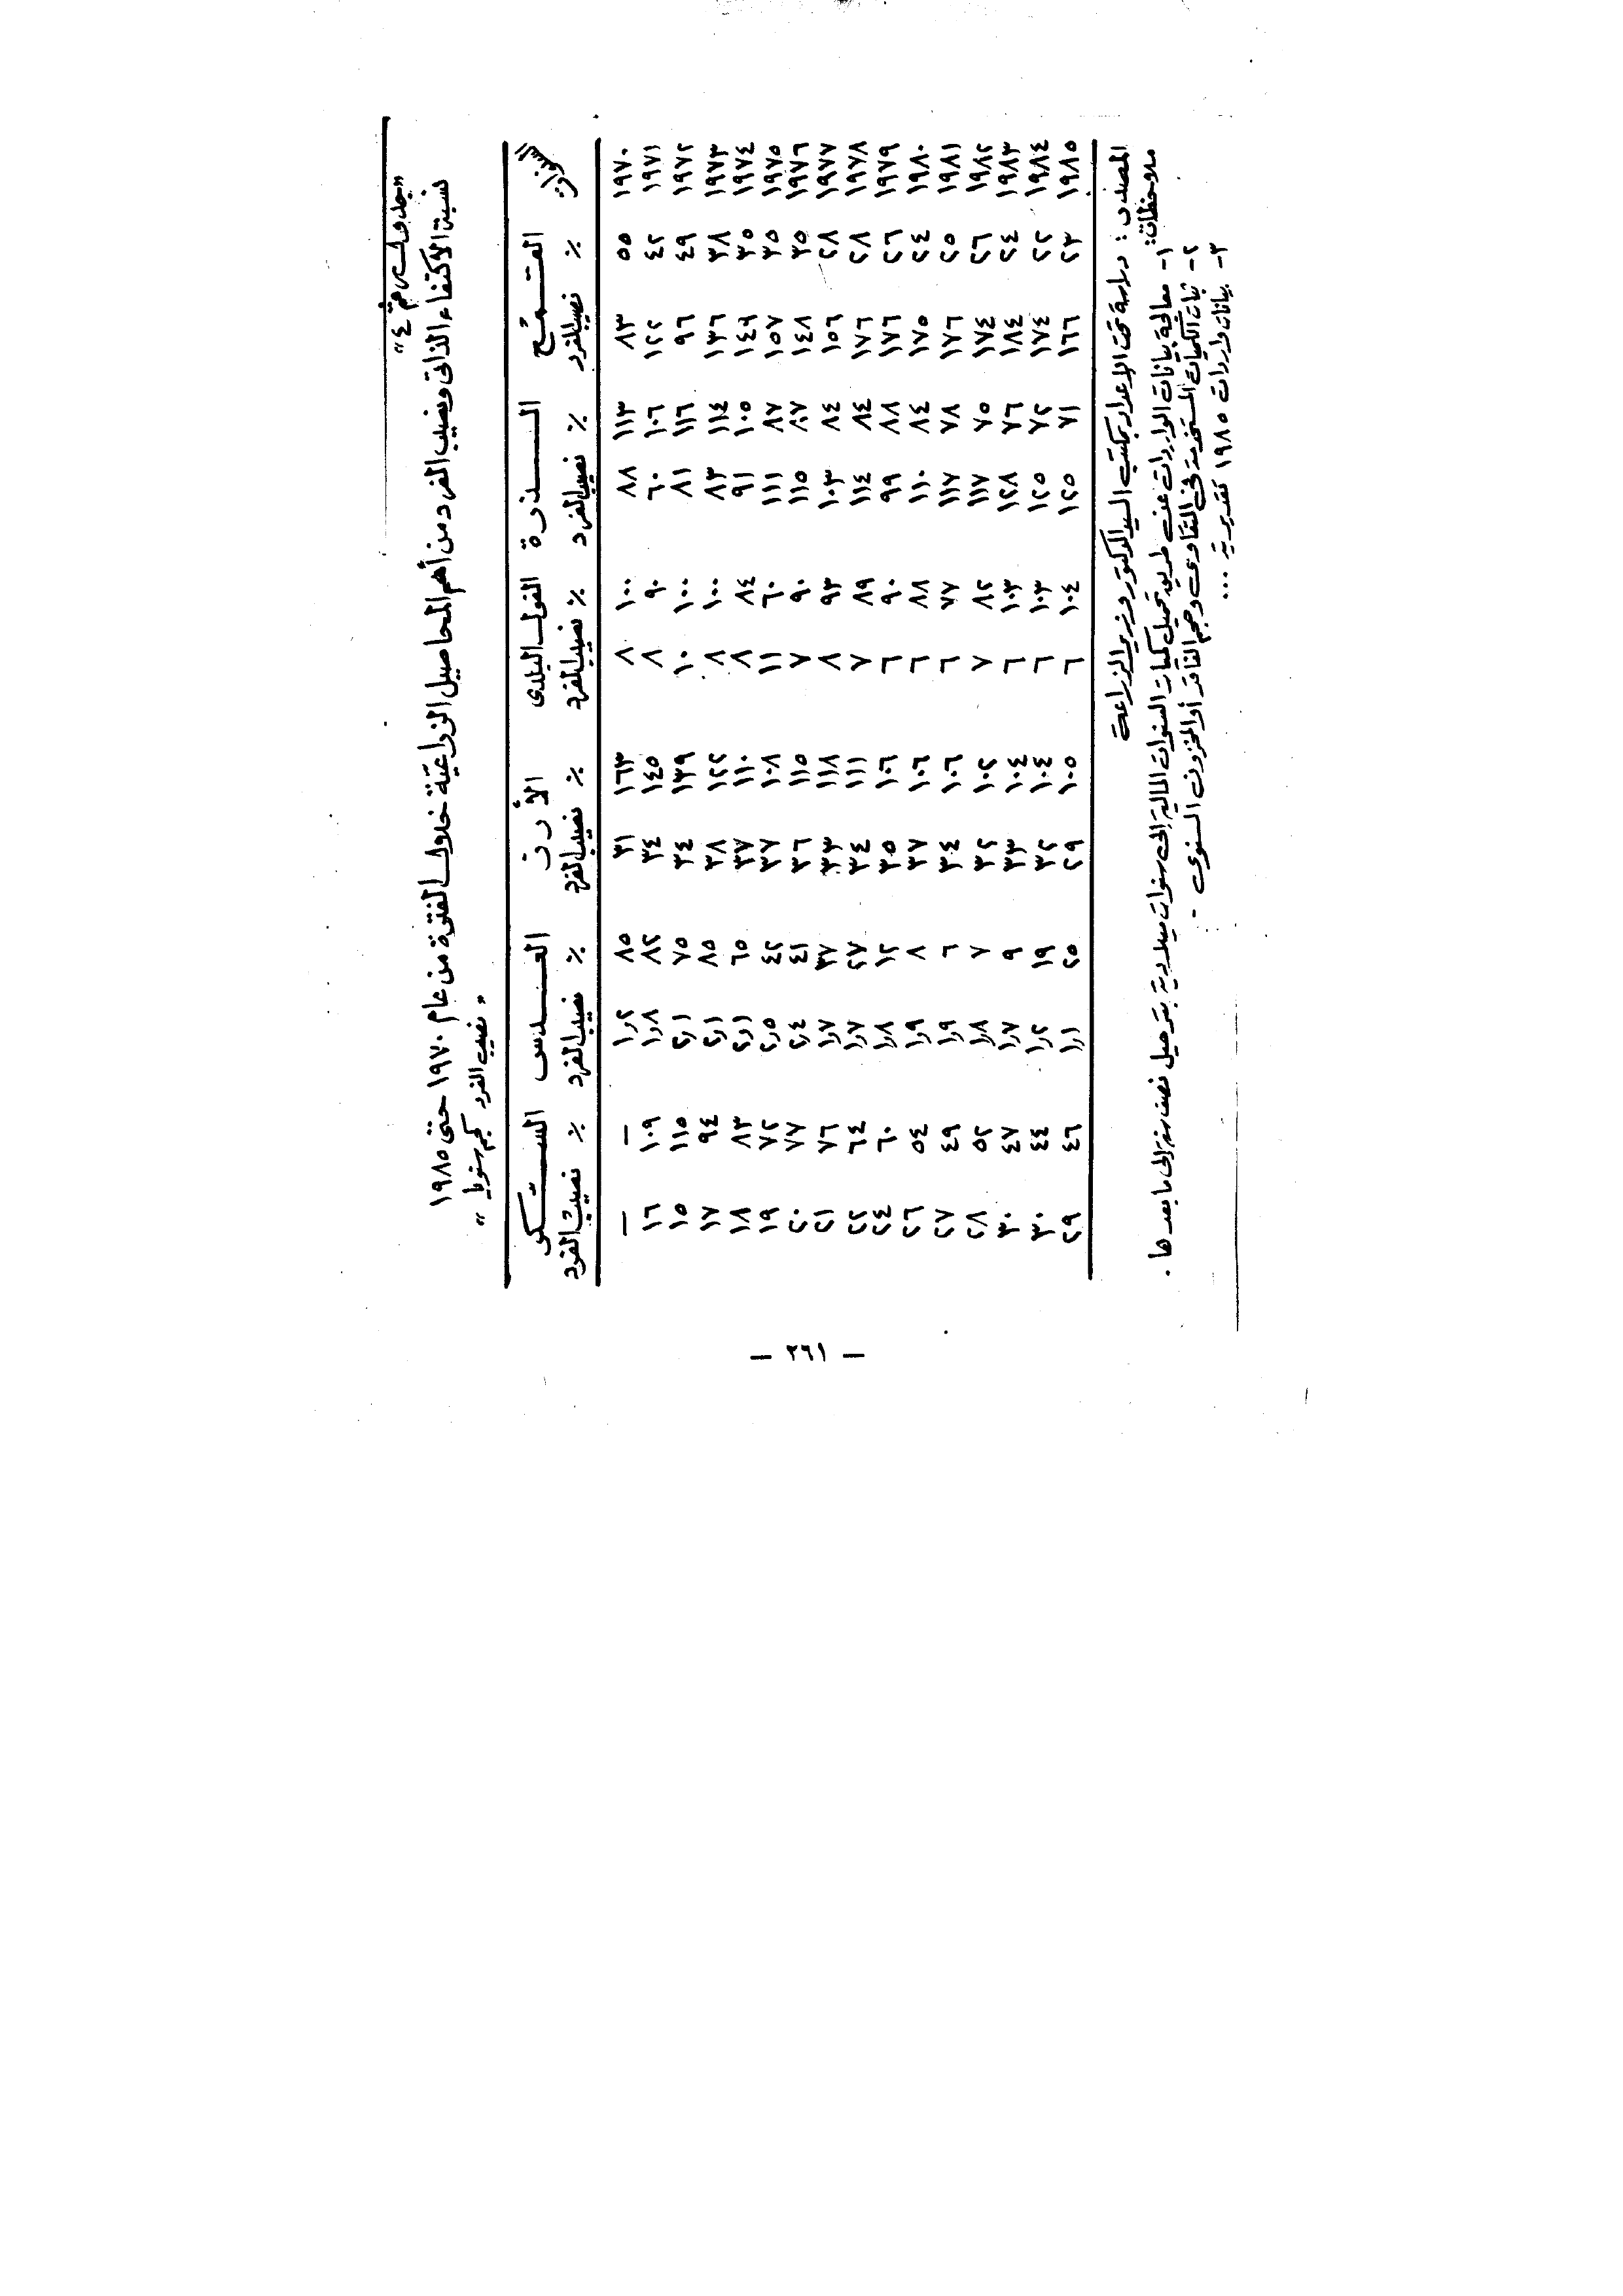 "جدول رقم ٤"
نسبة الاكتفاء الذاتى ونصيب الفرد من أهم المحاصيل الزراعية خلال الفترة من عام ١٩٧٠ حتى ١٩٨٥
"نصيب الفرد كجم سنويا"
السنوات القمح الذرة الفول البلدى الأرز العدس السكر
٪ نصيب الفرد ٪ نصيب الفرد ٪ نصيب الفرد ٪ نصيب الفرد ٪ نصيب الفرد ٪ نصيب الفرد
١٩٧٠ ٥٥ ٨٣ ١١٣ ٨٨ ١٠٠ ٨ ١٦٣ ٣١ ٨٥ ١٫٢ — —
١٩٧١ ٤٢ ١٢٢ ١٠٦ ٦٠ ٩٠ ٨ ١٤٥ ٣٤ ٨٢ ١٫٨ ١٠٩ ١٦
١٩٧٢ ٤٩ ٩٦ ١١٦ ٨١ ١٠٠ ١٠ ١٣٩ ٣٤ ٧٥ ٢٫١ ١١٥ ١٥
١٩٧٣ ٣٨ ١٣٦ ١١٤ ٨٣ ١٠٠ ٨ ١٢٢ ٣٨ ٨٥ ٢٫١ ٩٤ ١٧
١٩٧٤ ٣٥ ١٤٩ ١٠٥ ٩١ ٨٤ ٨ ١١٠ ٣٧ ٦٥ ٢٫١ ٨٣ ١٨
١٩٧٥ ٣٥ ١٥٧ ٨٧ ١١١ ٦٠ ١١ ١٠٨ ٣٧ ٤٢ ٢٫٥ ٧٢ ١٩
١٩٧٦ ٣٥ ١٤٨ ٨٧ ١١٥ ٩٠ ٧ ١١٥ ٣٦ ٤١ ٢٫٤ ٧٧ ٢٠
١٩٧٧ ٢٨ ١٥٦ ٨٤ ١٠٣ ٩٣ ٨ ١١٨ ٣٣ ٣٧ ١٫٧ ٧٦ ٢١
١٩٧٨ ٢٨ ١٧٦ ٨٤ ١١٤ ٨٩ ٧ ١١١ ٣٤ ٢٧ ١٫٧ ٦٤ ٢٢
١٩٧٩ ٢٦ ١٧٦ ٨٨ ٩٩ ٩٠ ٦ ١٠٦ ٣٥ ١٢ ١٫٨ ٦٠ ٢٤
١٩٨٠ ٢٤ ١٧٥ ٨٤ ١١٠ ٨٨ ٦ ١٠٦ ٣٧ ٨ ١٫٩ ٥٤ ٢٦
١٩٨١ ٢٥ ١٧٦ ٧٨ ١١٧ ٧٧ ٦ ١٠٦ ٣٤ ٦ ١٫٩ ٤٩ ٢٧
١٩٨٢ ٢٦ ١٧٤ ٧٥ ١١٧ ٨٢ ٧ ١٠٢ ٣٢ ٧ ١٫٨ ٥٢ ٢٨
١٩٨٣ ٢٤ ١٨٤ ٧٦ ١٢٨ ١٠٣ ٦ ١٠٤ ٣٣ ٩ ١٫٧ ٤٧ ٣٠
١٩٨٤ ٢٢ ١٧٤ ٧٢ ١٢٥ ١٠٣ ٦ ١٠٤ ٣٢ ١٩ ١٫٢ ٤٤ ٣٠
١٩٨٥ ٢٣ ١٦٦ ٧١ ١٢٥ ١٠٤ ٦ ١٠٥ ٢٩ ٢٥ ١٫١ ٤٦ ٢٩
المصدر : دراسة تحت الاعداد بمكتب السيد الدكتور وزير الزراعة
ملاحظات:
١- معالجة بيانات الواردات عن طريق تحميل كميات السنوات المالية إلى سنوات ميلادية بترحيل نصف سنة إلى ما بعدها .
٢- ثبات الكميات المستخدمة فى التقاوى وحجم الفاقد أو المخزون السنوى -
٣- بيانات واردات ١٩٨٥ تقديرية ...
— ٢٦١ —